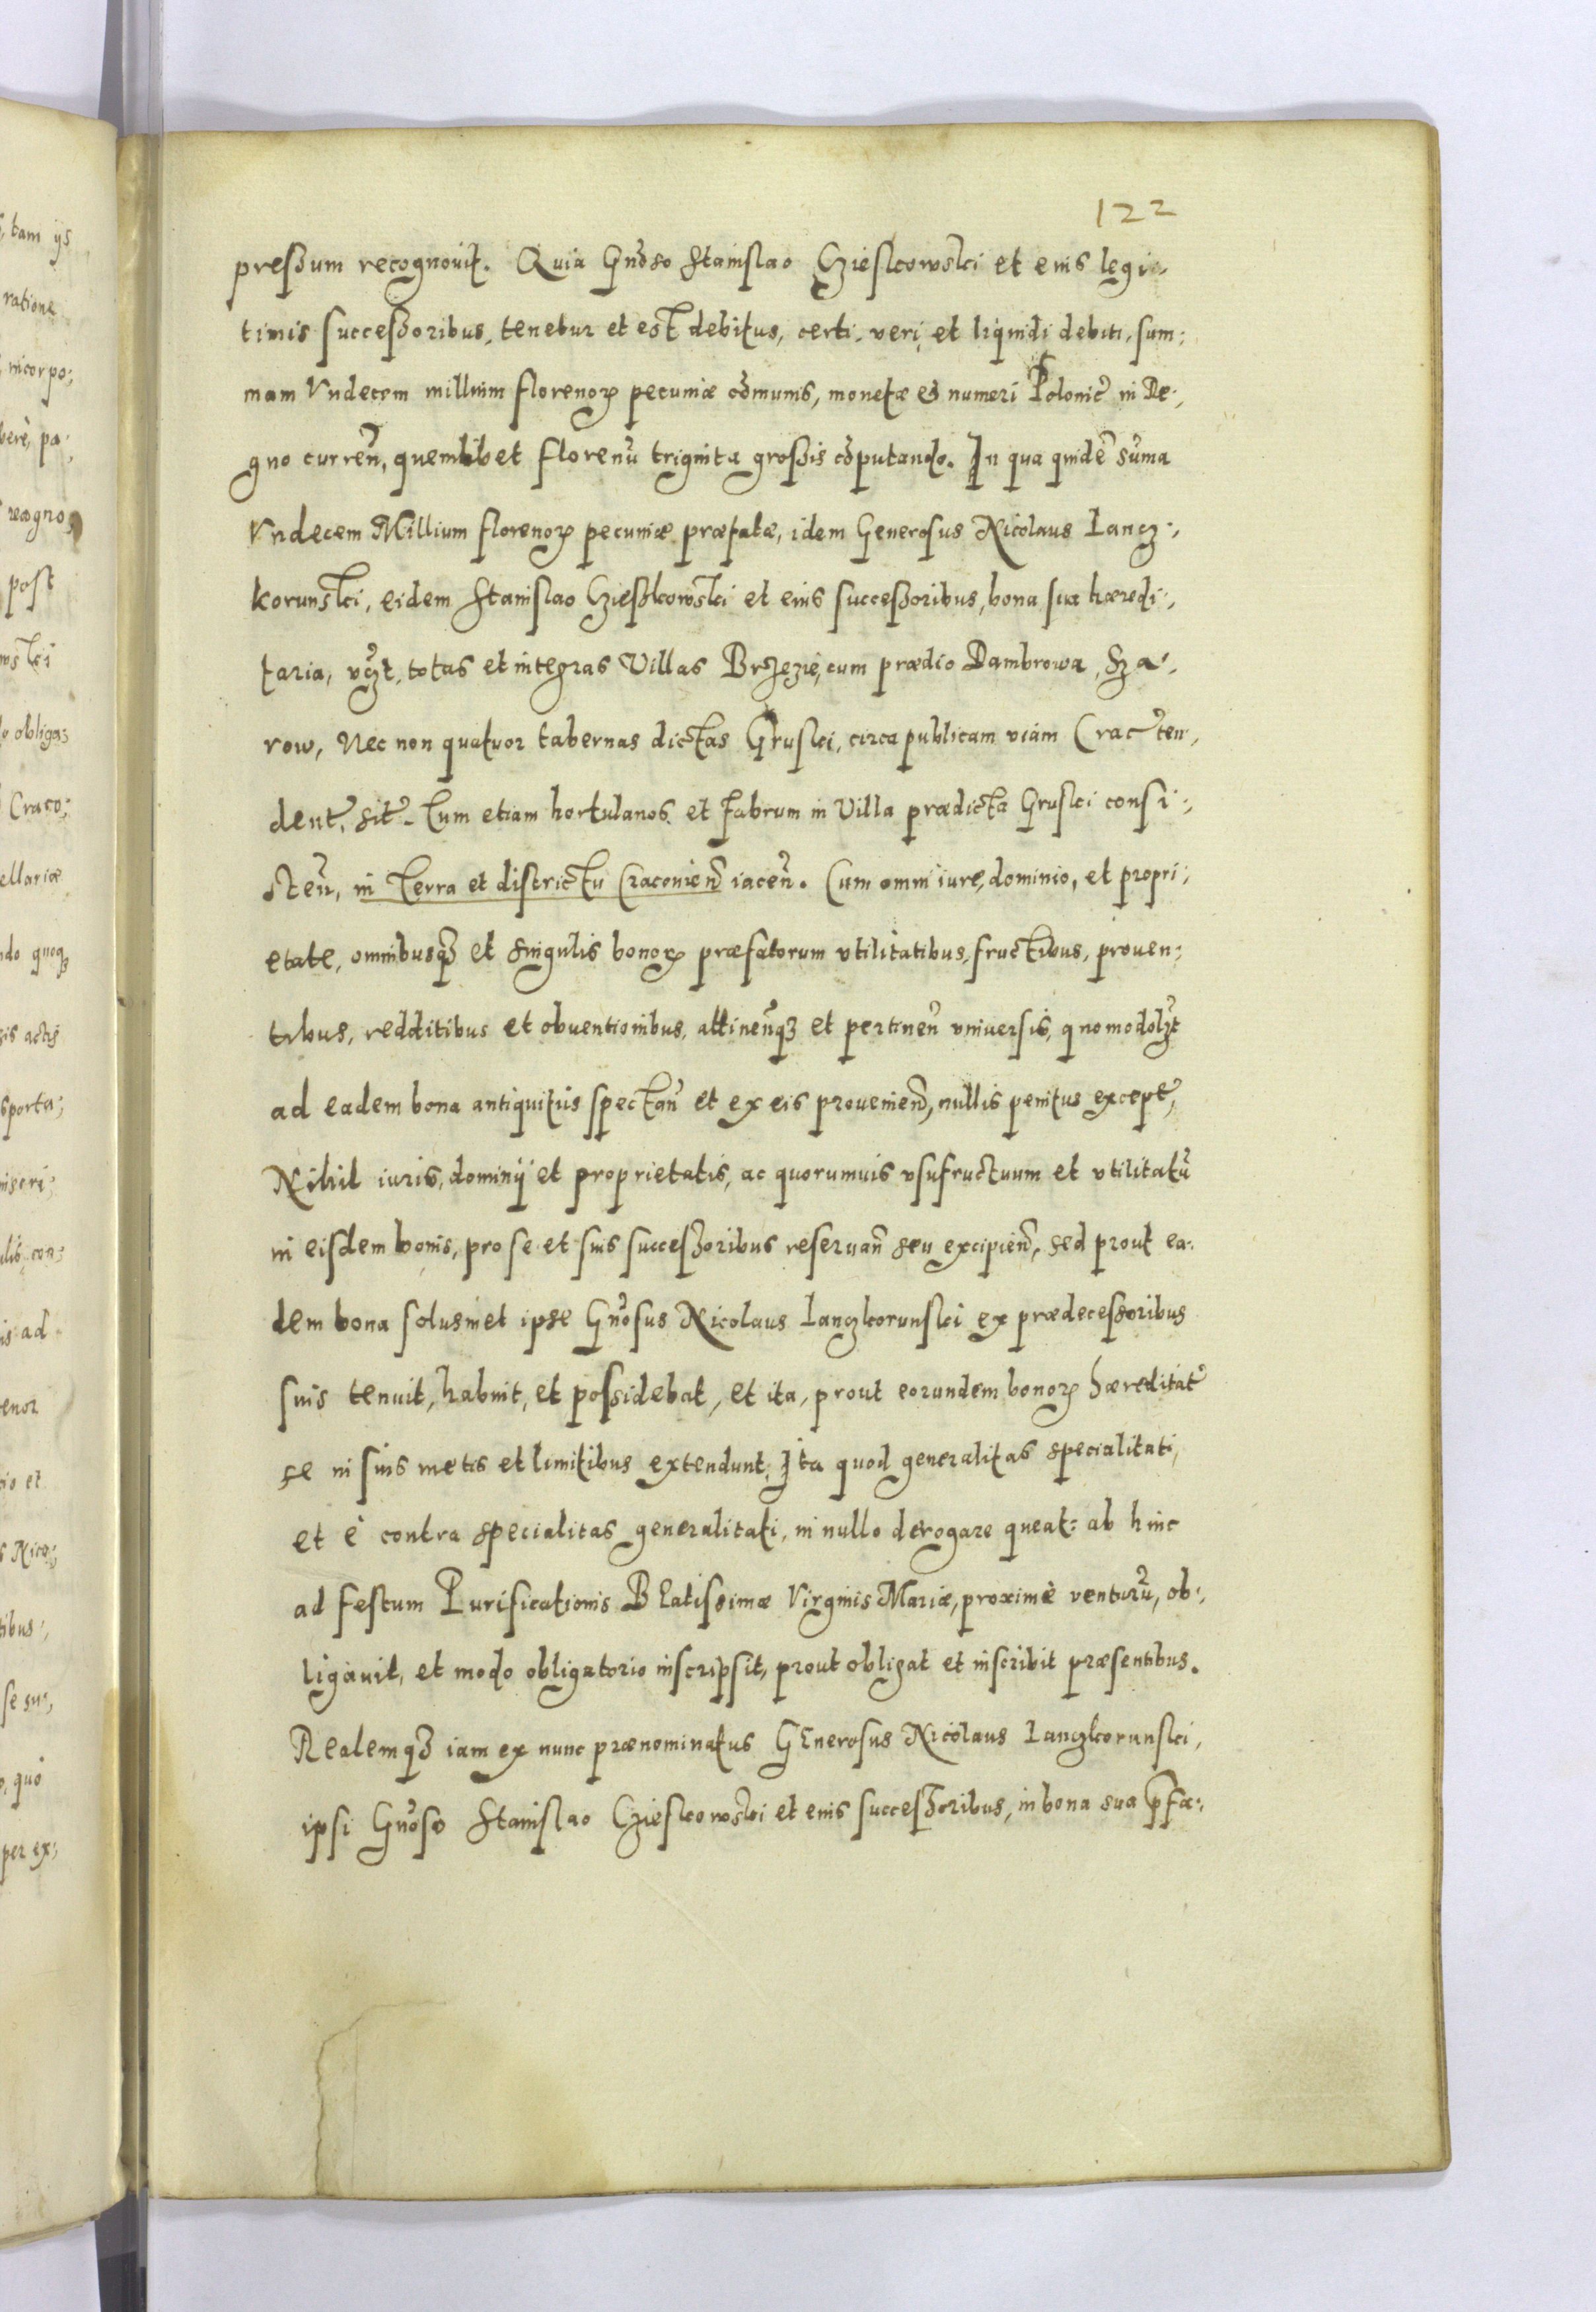 122
preßum recognouit. Quia Gnoso Stanislao Czieskowski et eius legi-
timis succeßoribus, tenetur et est debitus, certi, veri, et liquidi debiti, sum:
mam Vndecem millium florenoꝝ pecuniæ cōmunis, monetæ et numeri Polonic̄ in Re:
gno curren̄, quemlibet florenū triginta großis cōputando. In qua quidē sūma
Vndecem Millium florenoꝝ pecuniæ præfatæ, idem Generosus Nicolaus Lancz:
korunski, eidem Stanislao Czießkowski et eius succeßoribus, bona sua hæredi:
taria, vczt, totas et integras Villas Brzezie, cum prædio Dambrowa, Sza:
row, Nec non quatuor tabernas dictas Gruski, circa publicam viam Crac̄ ten,
dent, sit̄. Tum etiam hortulanos et fabrum in Villa prædicta Gruski consi:
sten̄, in terra et districtu Cracouien̄ iacen̄. Cum omni iure, dominio, et propri:
etate, omnibusqꝫ et singulis bonoꝝ præfatorum vtilitatibus, fructibus, prouen:
tibus, redditibus et obuentionibus, attinen̄qꝫ et pertinen̄ vniuersis, quomodolꝫt
ad eadem bona antiquitùs spectan̄ et ex eis prouenien̄, nullis penitus except̄,
Nihil iuris, dominij et proprietatis, ac quorumuis vsufructuum et vtilitatū
in eisdem bonis, pro se et suis succeßoribus reseruan̄ seu excipien̄, sed prout ea:
dem bona solusmet ipse Gnosus Nicolaus Lanczkorunski ex prædeceßoribus
suis tenuit, habuit, et possidebat, et ita, prout eorundem bonoꝝ hæreditat̄
se in suis metis et limitibus extendunt, Ita quod generalitas specialitati,
et è contra specialitas generalitati, in nullo derogare queat: ab hinc
ad festum Purificationis BEatissimæ Virginis Mariæ, proximè venturū, ob:
ligauit, et modo obligatorio inscripsit, prout obligat et inscribit præsentibus.
Realemqꝫ iam ex nunc prænominatus GEnerosus Nicolaus Lanczkorunski,
ipsi Gnoso Stanislao Czieskowski et eius succeßoribus, in bona sua p̄fa: